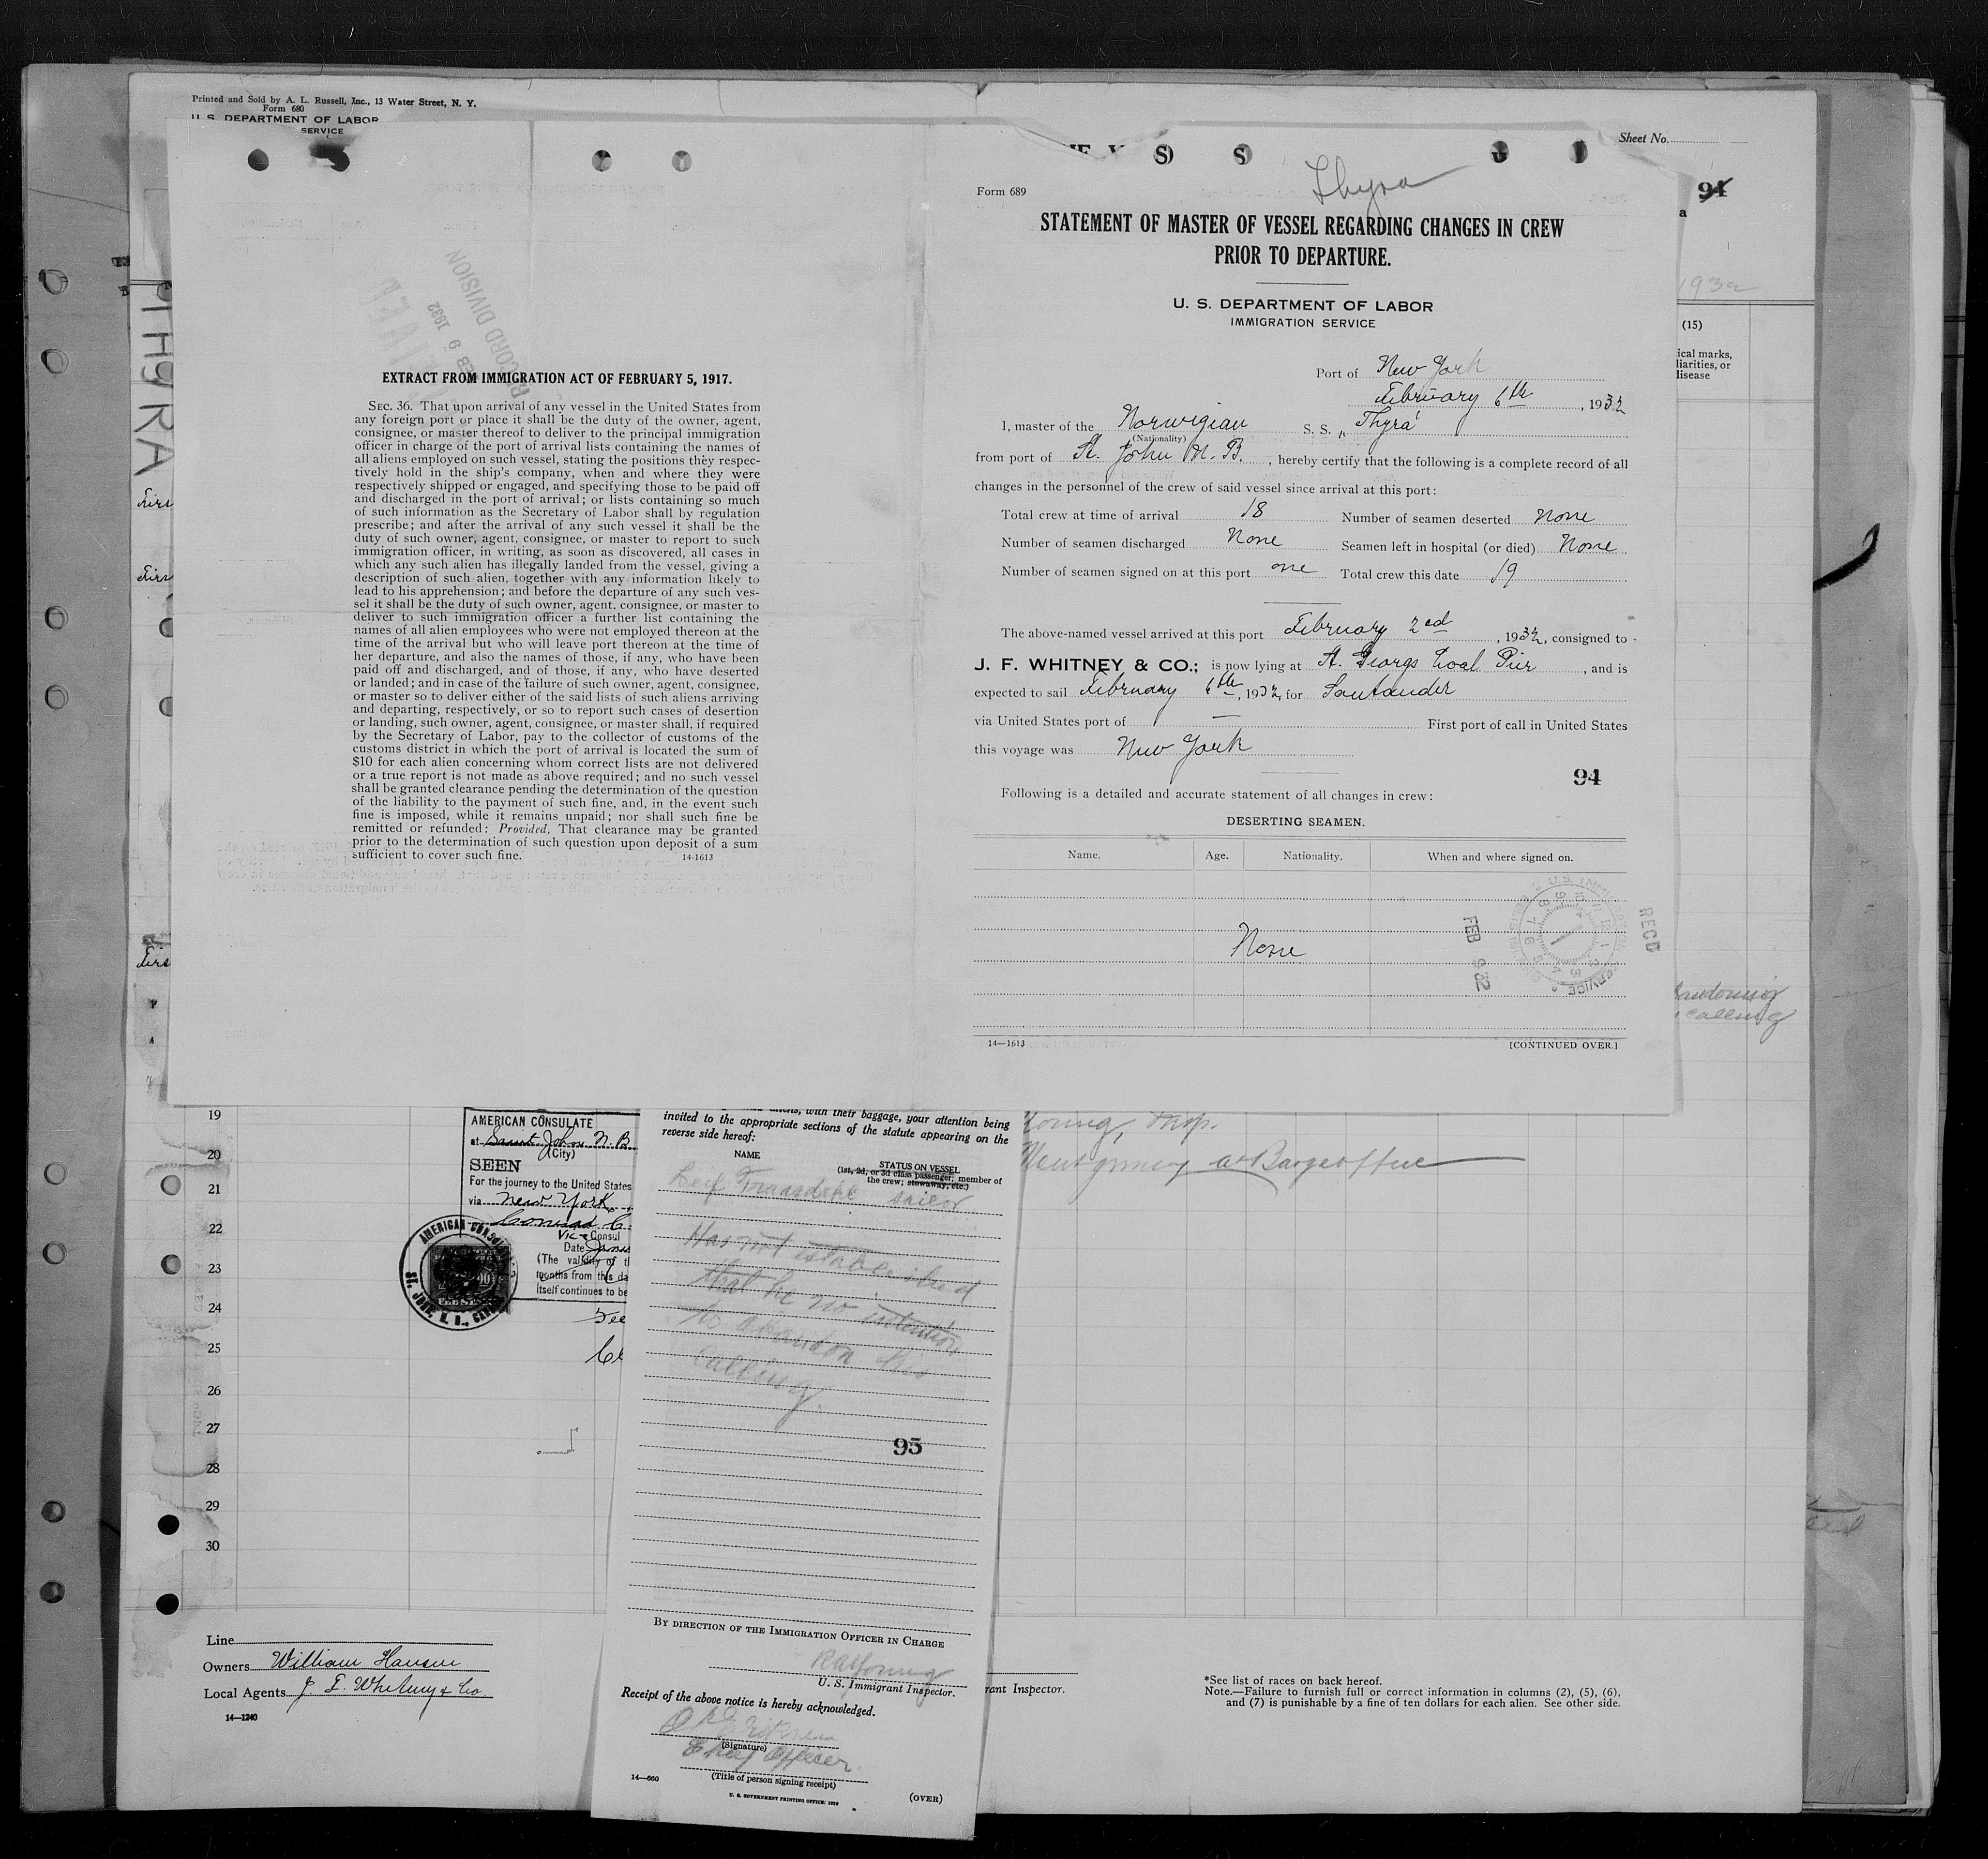 Printed and Sold by A. L. Russell, Inc., 13 Water Street, N. Y.
Form 680
U. S. DEPARTMENT OF LABOR
SERVICE
Sheet No.
94
THYRA
RECORD DIVISION
FEB 9 1932
EXTRACT FROM IMMIGRATION ACT OF FEBRUARY 5, 1917.
SEC. 36. That upon arrival of any vessel in the United States from
any foreign port or place it shall be the duty of the owner, agent,
consignee, or master thereof to deliver to the principal immigration
officer in charge of the port of arrival lists containing the names of
all aliens employed on such vessel, stating the positions they respec-
tively hold in the ship's company, when and where they were
respectively shipped or engaged, and specifying those to be paid off
and discharged in the port of arrival; or lists containing so much
of such information as the Secretary of Labor shall by regulation
prescribe; and after the arrival of any such vessel it shall be the
duty of such owner, agent, consignee, or master to report to such
immigration officer, in writing, as soon as discovered, all cases in
which any such alien has illegally landed from the vessel, giving a
description of such alien, together with any information likely to
lead to his apprehension; and before the departure of any such ves-
sel it shall be the duty of such owner, agent, consignee, or master to
deliver to such immigration officer a further list containing the
names of all alien employees who were not employed thereon at the
time of the arrival but who will leave port thereon at the time of
her departure, and also the names of those, if any, who have been
paid off and discharged, and of those, if any, who have deserted
or landed; and in case of the failure of such owner, agent, consignee,
or master so to deliver either of the said lists of such aliens arriving
and departing, respectively, or so to report such cases of desertion
or landing, such owner, agent, consignee, or master shall, if required
by the Secretary of Labor, pay to the collector of customs of the
customs district in which the port of arrival is located the sum of
$10 for each alien concerning whom correct lists are not delivered
or a true report is not made as above required; and no such vessel
shall be granted clearance pending the determination of the question
of the liability to the payment of such fine, and, in the event such
fine is imposed, while it remains unpaid; nor shall such fine be
remitted or refunded: Provided, That clearance may be granted
prior to the determination of such question upon deposit of a sum
sufficient to cover such fine. 14-1613
Thyra
Form 689
STATEMENT OF MASTER OF VESSEL REGARDING CHANGES IN CREW
PRIOR TO DEPARTURE.
U. S. DEPARTMENT OF LABOR
IMMIGRATION SERVICE
Port of New York
February 6th, 1932
I, master of the Norwigian S. S. "Thyra"
(Nationality)
from port of St. John N. B., hereby certify that the following is a complete record of all
changes in the personnel of the crew of said vessel since arrival at this port:
Total crew at time of arrival 18 Number of seamen deserted None
Number of seamen discharged None Seamen left in hospital (or died) None
Number of seamen signed on at this port one Total crew this date 19
The above-named vessel arrived at this port February 2ed, 1932, consigned to
J. F. WHITNEY & CO.; is now lying at St. Georgs Coal Pier, and is
expected to sail February 6th, 1932, for Santander
via United States port of — First port of call in United States
this voyage was New York
94
Following is a detailed and accurate statement of all changes in crew:
DESERTING SEAMEN.
Name. Age. Nationality. When and where signed on.
None
FEB 9 32
RECD
U.S. IMMIGRATION SERVICE
14—1613 [CONTINUED OVER.]
(15)
ical marks,
liarities, or
disease
calling
19
20
21
22
23
24
25
26
27
28
29
30
AMERICAN CONSULATE
at Saint John N. B.
(City)
SEEN
For the journey to the United States
via New York
Vice Consul
Date
(The validity of t
months from this da
itself continues to be
AMERICAN CONSUL
ST. JOHN, N. B., CANADA
aliens, with their baggage, your attention being
invited to the appropriate sections of the statute appearing on the
reverse side hereof:
NAME
STATUS ON VESSEL
(1st, 2d, or 3d class passenger; member of
the crew; stowaway, etc.)
Leif Traasdahl sailor
Has not established
that he no intention
to abandon his
calling.
95
BY DIRECTION OF THE IMMIGRATION OFFICER IN CHARGE
R A Young
U. S. Immigrant Inspector.
Receipt of the above notice is hereby acknowledged.
(Signature)
Chief Officer
(Title of person signing receipt)
14—660
U. S. GOVERNMENT PRINTING OFFICE: 1929
(OVER)
Young, Insp.
Montgomery at Bargeoffice
Line
Owners William Hansen
Local Agents J. F. Whitney & Co.
14—1240
rant Inspector.
*See list of races on back hereof.
Note.—Failure to furnish full or correct information in columns (2), (5), (6),
and (7) is punishable by a fine of ten dollars for each alien. See other side.